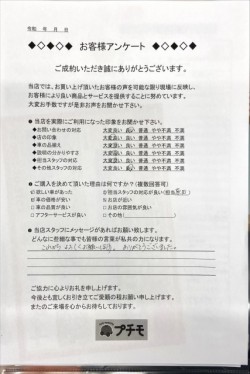 令和 年 月 日
◆◇◆◇◆ お客様アンケート ◆◇◆◇◆
ご成約いただき誠にありがとうございます。
当店では、お買い上げ頂いたお客様の声を可能な限り現場に反映し、
お客様により良い商品とサービスを提供することに努めています。
大変お手数ですが是非お声をお聞かせ下さい。
● 当店を実際にご利用になった印象をお聞かせ下さい。
◆お問い合わせの対応 大変良い 良い 普通 やや不満 不満
◆店の印象 大変良い 良い 普通 やや不満 不満
◆車の品揃え 大変良い 良い 普通 やや不満 不満
◆説明の分かりやすさ 大変良い 良い 普通 やや不満 不満
◆担当スタッフの対応 大変良い 良い 普通 やや不満 不満
◆その他スタッフの対応 大変良い 良い 普通 やや不満 不満
● ご購入を決めて頂いた理由は何ですか?(複数回答可)
□ 欲しい車があった □ スタッフの対応が良い(担当
□ 車の価格が良い □ お店が近い
□ 車の品質が良い □ お店の雰囲気が良い
□ アフターサービスが良い □ その他( )
● 当店スタッフにメッセージがあればお願い致します。
どんなに些細な事でも皆様の言葉が私共の力になります。
これからもよろしくお願いします。ありがとうございました。
ご協力に心よりお礼を申し上げます。
今後とも宜しくお引き立てご愛顧の程お願い申し上げます。
またのご来場を心からお待ちしております。
プチモ